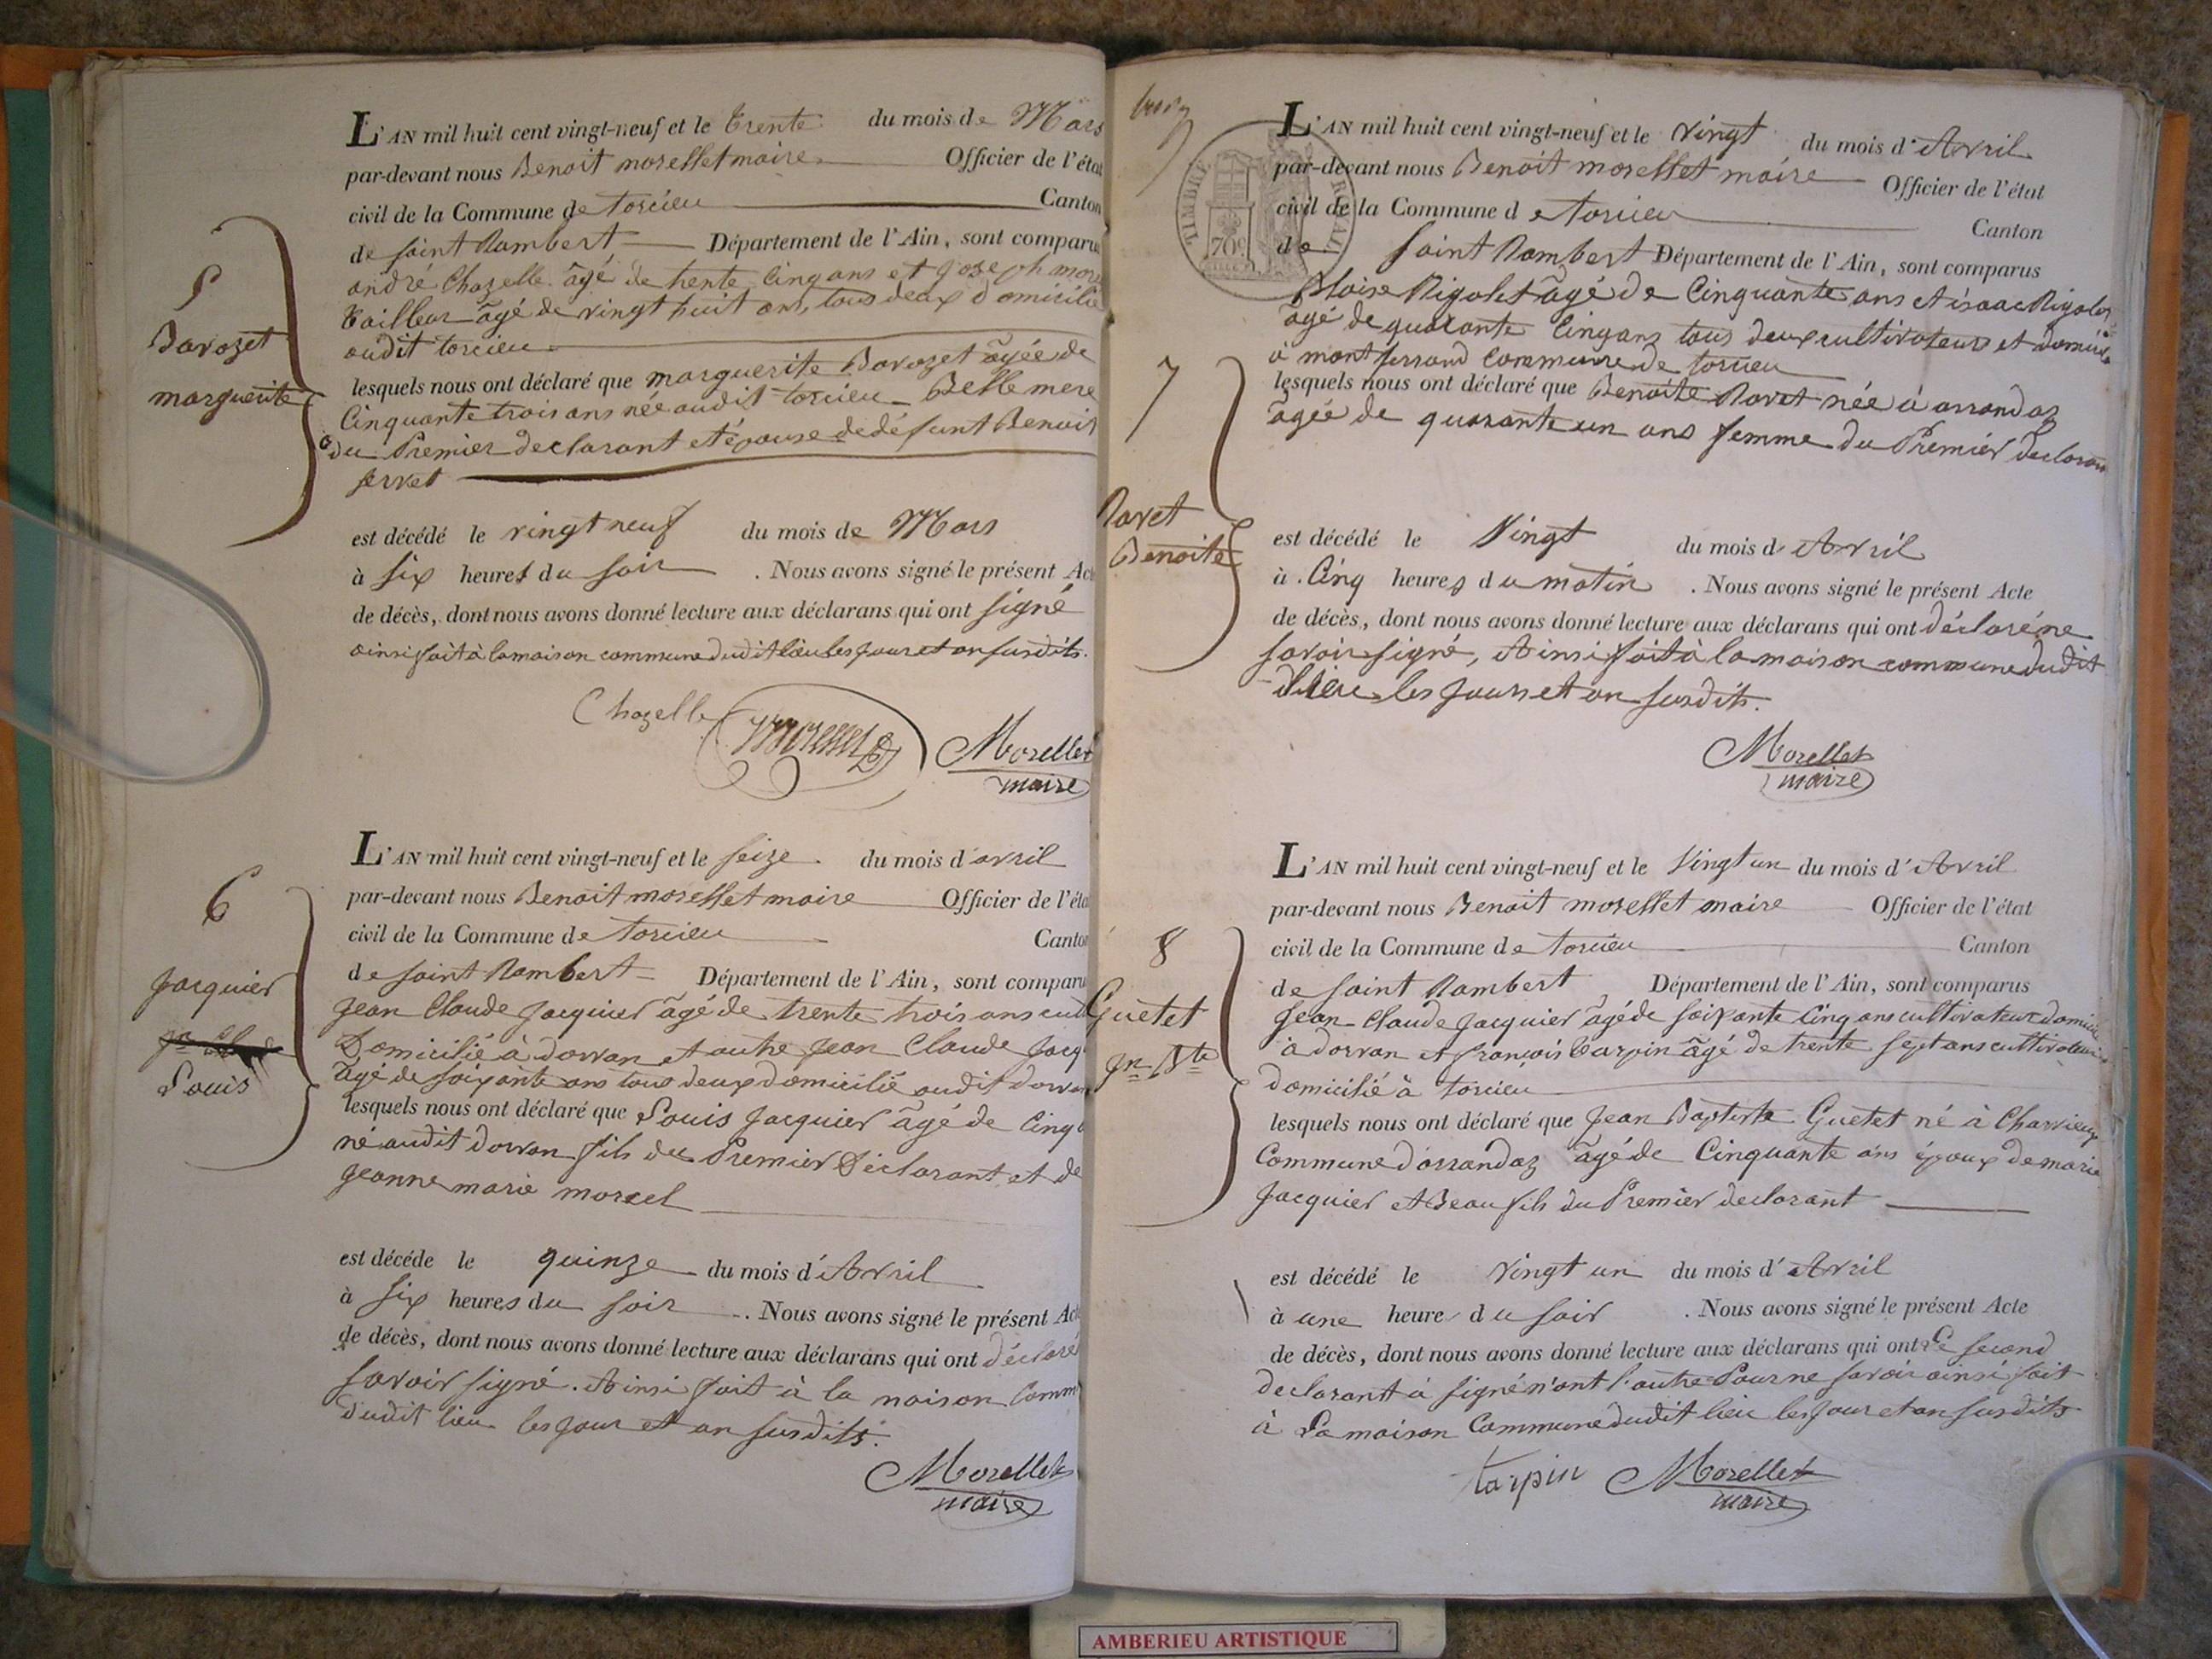 L'AN mil huit cent vingt-neuf et le trente du mois de Mars
par-devant nous Benoit morellet maire Officier de l'état
civil de la Commune de torcieu Canton
de saint Rambert Département de l'Ain, sont comparu
andré Chazelle âgé de trente Cinq ans et joseph mor
tailleur âgé de vingt huit ans, tous deux domicilié
audit torcieu
lesquels nous ont déclaré que marguerite Barozet âgée de
Cinquante trois ans née audit torcieu Belle mere
du Premier declarant et épouse de défunt Benoit
serret
est décédé le vingt neuf du mois de Mars
à six heures du soir . Nous avons signé le présent Act
de décès, dont nous avons donné lecture aux déclarans qui ont signé
ainsi fait à la maison commune dudit lieu les jour et an susdits.
Chazelle Morellet
maire
5
Barozet
marguerite
L'AN mil huit cent vingt-neuf et le seize du mois d'avril
par-devant nous Benoit morellet maire Officier de l'éta
civil de la Commune de torcieu Canton
de saint Rambert Département de l'Ain, sont comparu
jean Claude jacquier âgé de trente trois ans cult
Domicilié à dorvan et autre jean Claude jacq
âgé de soixante ans tous deux domicilié audit dorvan
lesquels nous ont déclaré que Louis jacquier âgé de Cinq
né audit dorvan fils du Premier Déclarant et de
jeanne marie morcel
est décédé le quinze du mois d'Avril
à six heures du soir . Nous avons signé le présent Act
de décès, dont nous avons donné lecture aux déclarans qui ont déclaré
savoir signé. Ainsi fait à la maison Comm
dudit lieu les jour et an susdits.
Morellet
maire
6
jacquier
Louis
TIMBRE ROYAL
70c
L'AN mil huit cent vingt-neuf et le vingt du mois d'Avril
par-devant nous Benoit morellet maire Officier de l'état
civil de la Commune de torcieu Canton
de saint Rambert Département de l'Ain, sont comparus
Blaise Rigolet âgé de Cinquante ans et isaac Rigolet
âgé de quarante Cinq ans tous deux cultivateurs et domicilié
à montferrand commune de torcieu
lesquels nous ont déclaré que Benoite Ravet née à arrandaz
âgée de quarante un ans femme du Premier declarant
est décédé le Vingt du mois d'Avril
à Cinq heures du matin . Nous avons signé le présent Acte
de décès, dont nous avons donné lecture aux déclarans qui ont déclaré ne
savoir signé, Ainsi fait à la maison commune dudit
lieu les jour et an susdits.
Morellet
maire
7
Ravet
Benoite
L'AN mil huit cent vingt-neuf et le Vingt un du mois d'Avril
par-devant nous Benoit morellet maire Officier de l'état
civil de la Commune de torcieu Canton
de saint Rambert Département de l'Ain, sont comparus
jean Claude jacquier âgé de soixante Cinq ans cultivateur domicilié
à dorvan et françois tarpin âgé de trente sept ans cultivateur
domicilié à torcieu
lesquels nous ont déclaré que jean Baptiste Guetet né à Charvieux
Commune d'arrandaz âgé de Cinquante ans époux de marie
jacquier et Beau fils du Premier declarant
est décédé le vingt un du mois d'Avril
à une heure du soir . Nous avons signé le présent Acte
de décès, dont nous avons donné lecture aux déclarans qui ont Le second
declarant à signé n'ont l'autre Pour ne savoir ainsi fait
à La maison Commune dudit lieu les jour et an susdits
tarpin Morellet
maire
8
Guetet
jn Bte
AMBERIEU ARTISTIQUE